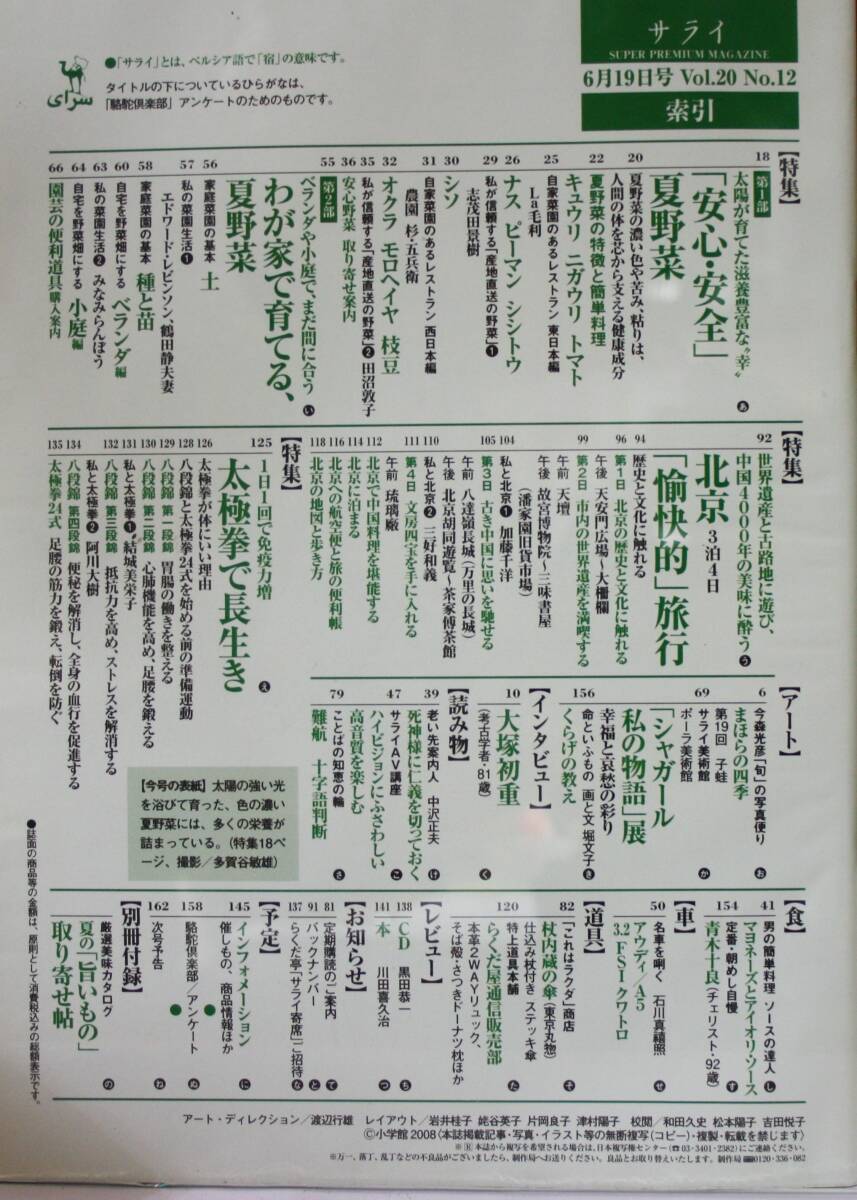 サライ
SUPER PREMIUM MAGAZINE
6月19日号 Vol.20 No.12
索引
●「サライ」とは、ペルシア語で「宿」の意味です。
タイトルの下についているひらがなは、
「駱駝倶楽部」アンケートのためのものです。
سرای
【特集】
18
第1部
太陽が育てた滋養豊富な〝幸〟
「安心・安全」
夏野菜 あ
20
夏野菜の濃い色や苦み、粘りは、
人間の体を芯から支える健康成分
22
夏野菜の特徴と簡単料理
キュウリ ニガウリ トマト
25
自家菜園のあるレストラン 東日本編
La毛利
26
ナス ピーマン シシトウ
29
私が信頼する「産地直送の野菜」❶
志茂田景樹
30
シソ
31
自家菜園のあるレストラン 西日本編
農園 杉・五兵衛
32
オクラ モロヘイヤ 枝豆
35
私が信頼する「産地直送の野菜」❷ 田沼敦子
36
安心野菜 取り寄せ案内
55
第2部
ベランダや小庭で、まだ間に合う い
わが家で育てる、
夏野菜
56
家庭菜園の基本 土
57
私の菜園生活❶
エドワード・レビンソン、鶴田静夫妻
58
家庭菜園の基本 種と苗
60
自宅を野菜畑にする ベランダ編
63
私の菜園生活❷ みなみらんぼう
64
自宅を野菜畑にする 小庭編
66
園芸の便利道具 購入案内
【特集】
92
世界遺産と古路地に遊び、
中国4000年の美味に酔う う
北京 3泊4日
「愉快的」旅行
94
歴史と文化に触れる
96
第1日 北京の歴史と文化に触れる
午後 天安門広場〜大柵欄
99
第2日 市内の世界遺産を満喫する
午前 天壇
午後 故宮博物院〜三味書屋
(潘家園旧貨市場)
104
私と北京❶ 加藤千洋
105
第3日 古き中国に思いを馳せる
午前 八達嶺長城(万里の長城)
午後 北京胡同遊覧〜茶家傅茶館
110
私と北京❷ 三好和義
111
第4日 文房四宝を手に入れる
午前 琉璃廠
112
北京で中国料理を堪能する
114
北京に泊まる
116
北京への航空便と旅の便利帳
118
北京の地図と歩き方
【特集】
125
1日1回で免疫力増
太極拳で長生き え
126
太極拳が体にいい理由
128
八段錦と太極拳24式を始める前の準備運動
129
八段錦 第一段錦 胃腸の働きを整える
130
八段錦 第二段錦 心肺機能を高め、足腰を鍛える
131
私と太極拳❶ 結城美栄子
132
八段錦 第三段錦 抵抗力を高め、ストレスを解消する
私と太極拳❷ 阿川大樹
134
八段錦 第四段錦 便秘を解消し、全身の血行を促進する
135
太極拳24式 足腰の筋力を鍛え、転倒を防ぐ
【アート】
6
今森光彦「旬」の写真便り
まほらの四季 お
第19回 子蛙
69
サライ美術館
ポーラ美術館 か
「シャガール
私の物語」展
幸福と哀愁の彩り
156
命といふもの 画と文 堀文子 き
くらげの教え
【インタビュー】
10
大塚初重 く
(考古学者・81歳)
【読み物】
39
老い先案内人 中沢正夫 け
死神様に仁義を切っておく
47
サライAV講座 こ
ハイビジョンにふさわしい
高音質を楽しむ
79
ことばの知恵の輪 さ
難航 十字語判断
【今号の表紙】太陽の強い光
を浴びて育った、色の濃い
夏野菜には、多くの栄養が
詰まっている。(特集18ペ
ージ、撮影/多賀谷敏雄)
【食】
41
男の簡単料理 ソースの達人 し
マヨネーズとアイオリ・ソース
154
定番・朝めし自慢 す
青木十良(チェリスト・92歳)
【車】
50
名車を唎く 石川真禧照 せ
アウディ/A5
3.2 FSI クワトロ
【道具】
82
「これはラクダ」商店 そ
杖内蔵の傘(東京丸惣)
仕込み杖付き ステッキ傘
120
特上道具本舗 た
らくだ屋通信販売部
本革2WAYリュック、
そば殻・さつきドーナツ枕ほか
【レビュー】
138
CD 黒田恭一 ち
141
本 川田喜久治 つ
【お知らせ】
81
定期購読のご案内 て
91
バックナンバー と
137
らくだ亭「サライ寄席」ご招待 な
【予定】
145
インフォメーション に
催しもの、商品情報ほか
158
駱駝倶楽部/アンケート ぬ
162
次号予告 ね
【別冊付録】
厳選美味カタログ の
夏の「旨いもの」
取り寄せ帖
●誌面の商品等の金額は、原則として消費税込みの総額表示です。
アート・ディレクション/渡辺行雄 レイアウト/岩井桂子 姥谷英子 片岡良子 津村陽子 校閲/和田久史 松本陽子 吉田悦子
©小学館2008〈本誌掲載記事・写真・イラスト等の無断複写(コピー)・複製・転載を禁じます〉
※Ⓡ本誌から複写を希望される場合は、日本複写権センター(☎03-3401-2382)にご連絡ください。
※万一、落丁、乱丁などの不良品がございましたら、制作局へお送りください。良品とお取り替えいたします。制作局 0120-336-082